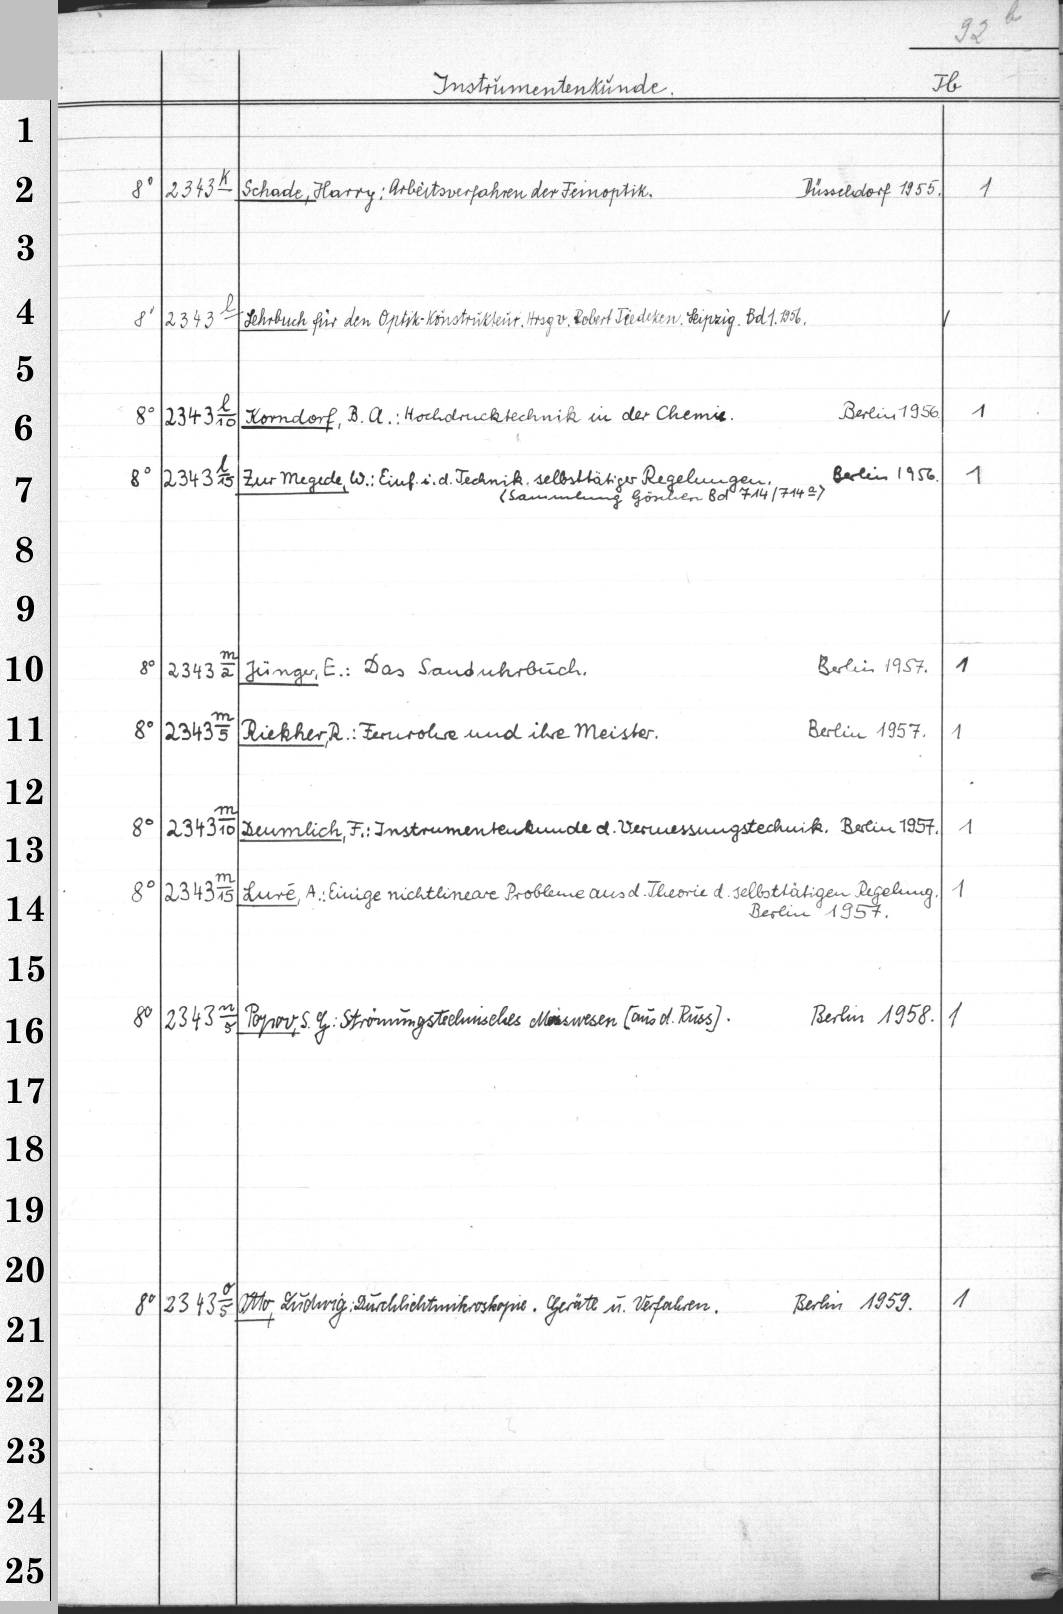 92 b
Instrumentenkunde. Tb
1
2 8° 2343 k Schade, Harry: Arbeitsverfahren der Feinoptik. Düsseldorf 1955. 1
3
4 8° 2343 l Lehrbuch für den Optik-Konstrukteur. Hrsg v. Robert Tiedeken. Leipzig. Bd 1. 1956.
5
6 8° 2343 l/10 Korndorf, B. A.: Hochdrucktechnik in der Chemie. Berlin 1956 1
7 8° 2343 l/15 Zur Megede, W.: Einf. i. d. Technik selbsttätiger Regelungen. Berlin 1956. 1
(Sammlung Göschen Bd 714/714a)
8
9
10 8° 2343 m/2 Jünger, E.: Das Sanduhrbuch. Berlin 1957. 1
11 8° 2343 m/5 Riekher, R.: Fernrohre und ihre Meister. Berlin 1957. 1
12
13 8° 2343 m/10 Deumlich, F.: Instrumentenkunde d. Vermessungstechnik. Berlin 1957. 1
14 8° 2343 m/15 Lur'é, A.: Einige nichtlineare Probleme aus d. Theorie d. selbsttätigen Regelung. 1
Berlin 1957.
15
16 8° 2343 n/5 Popov, S. G.: Strömungstechnisches Messwesen [aus d. Russ]. Berlin 1958. 1
17
18
19
20
21 8° 2343 o/5 Otto, Ludwig: Durchlichtmikroskopie. Geräte u. Verfahren. Berlin 1959. 1
22
23
24
25